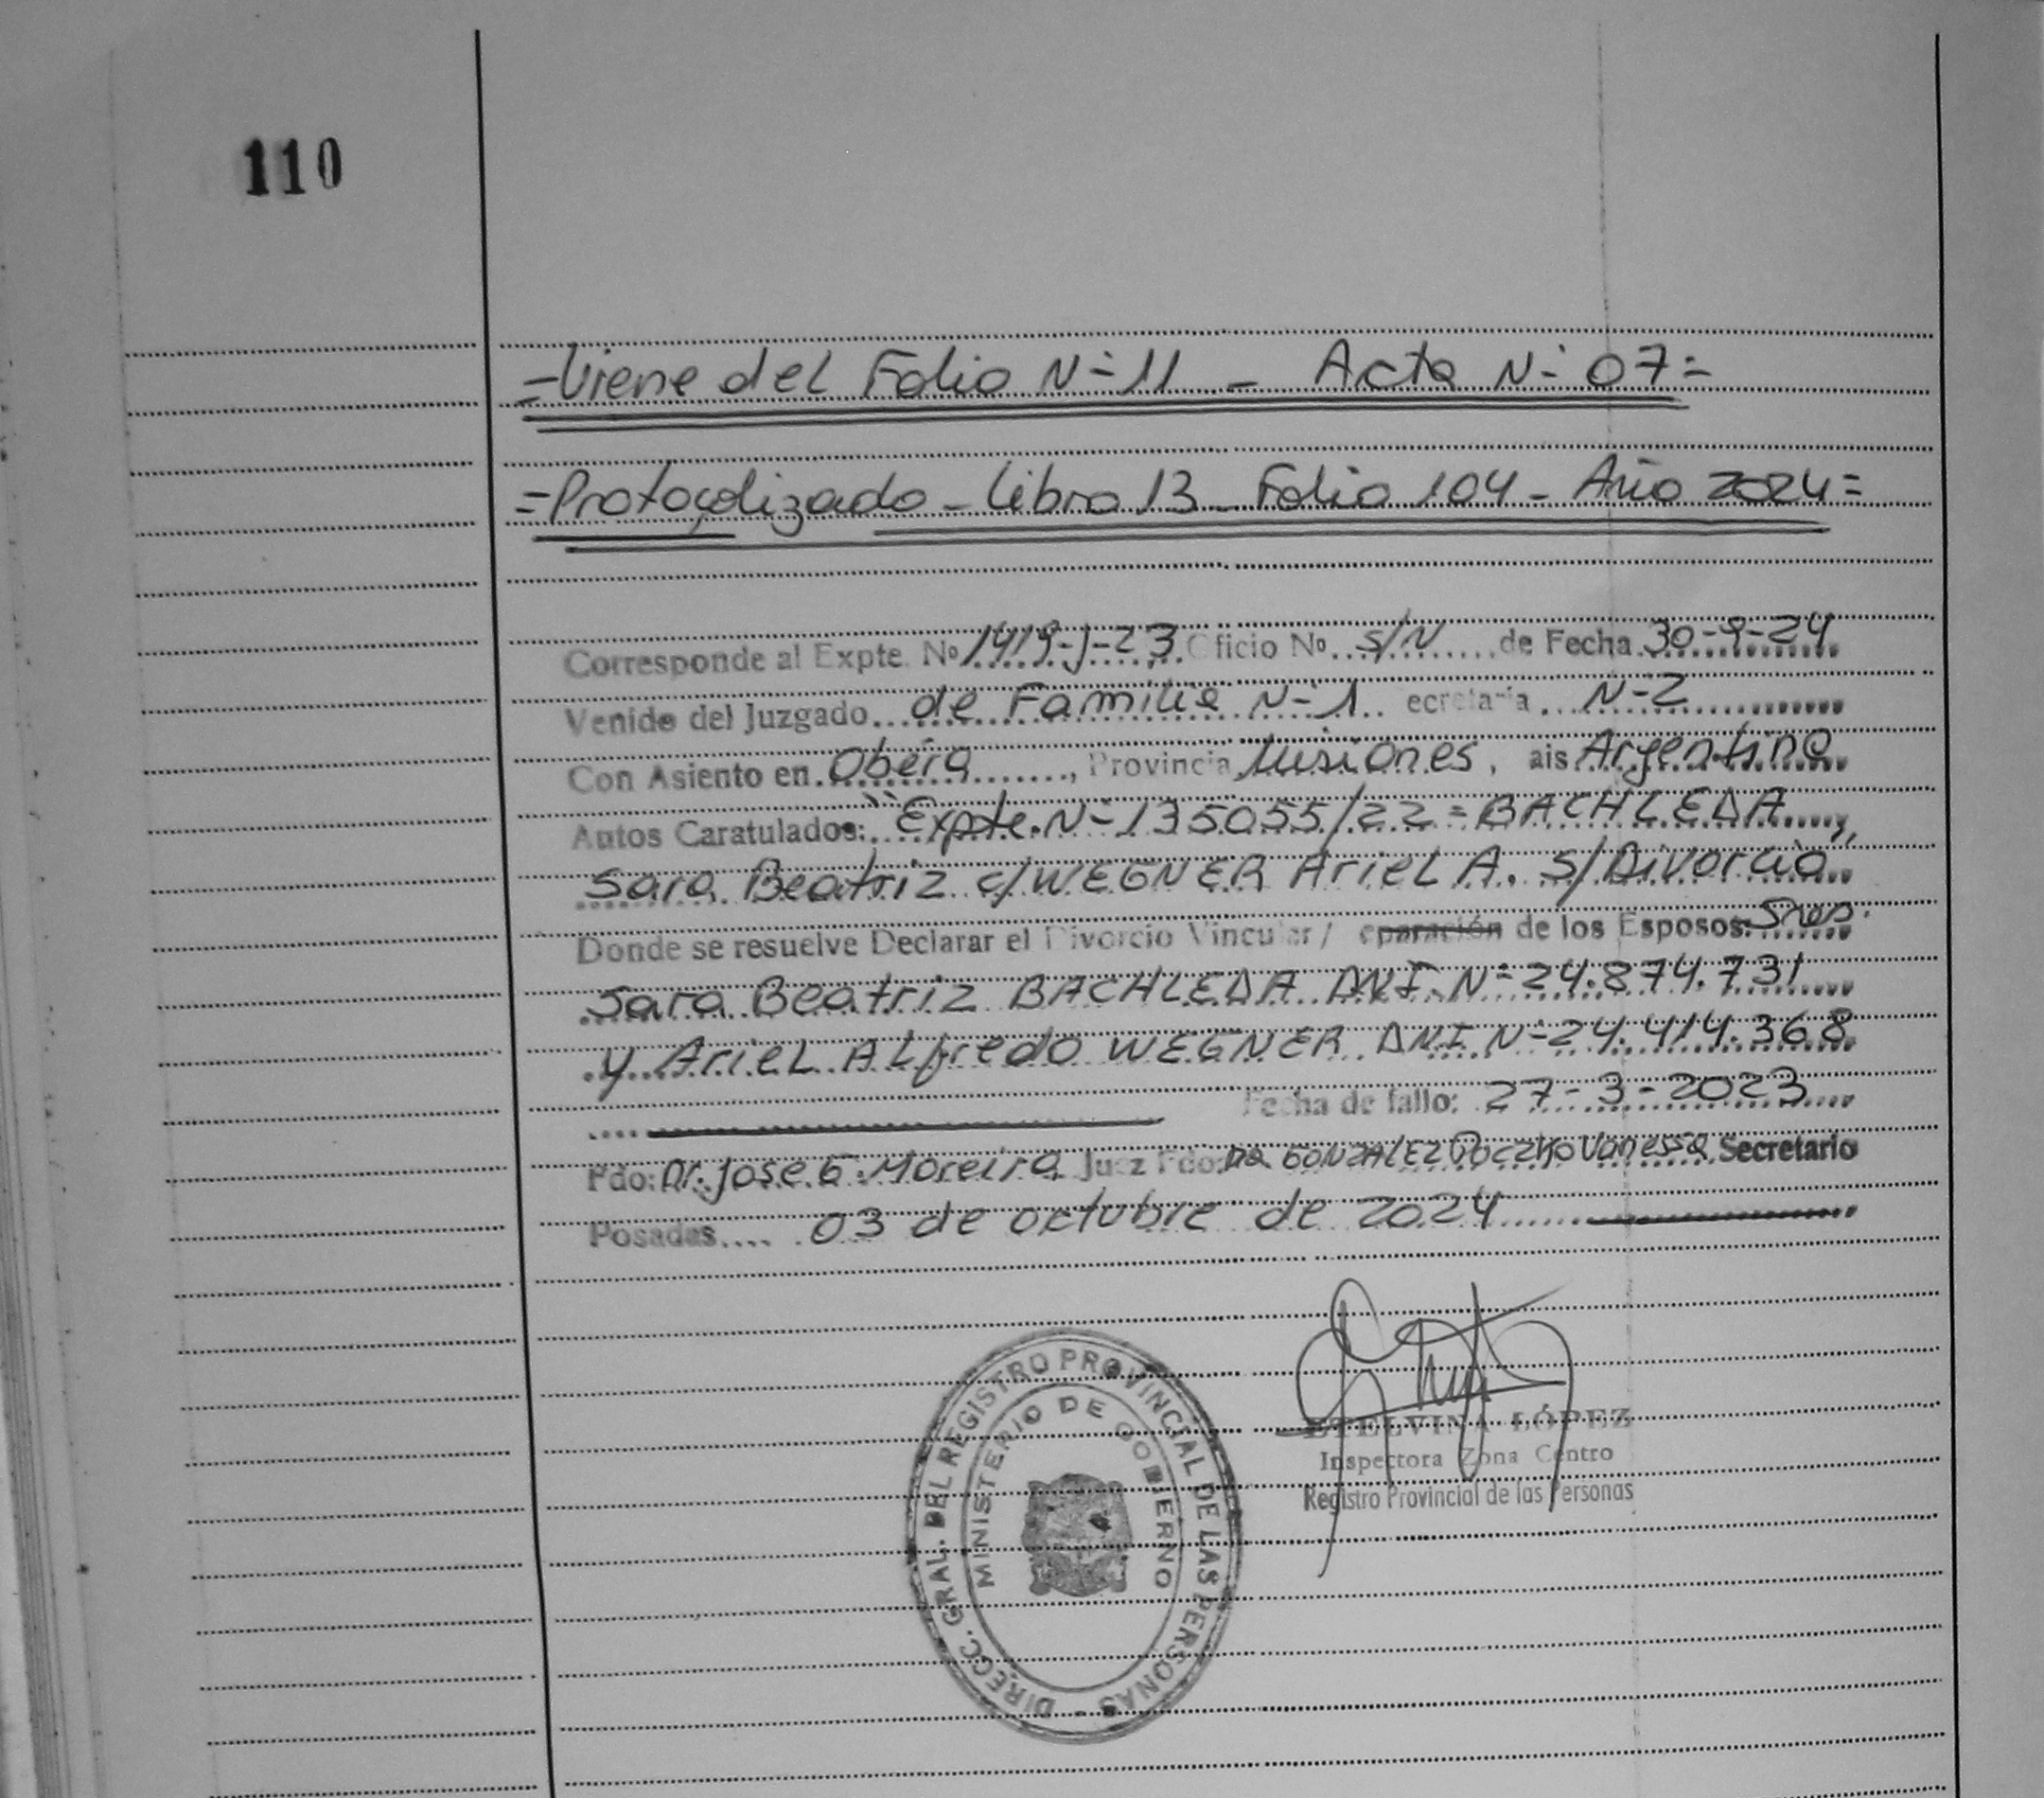 110
=Viene del Folio N-11 - Acta N- 07=
=Protocolizado - Libro 13 - Folio 104 - Año 2024=
Corresponde al Expte. Nº 1419-J-23 Oficio Nº S/N de Fecha 30-9-24
Venido del Juzgado de Familia N-1 ecretaria N-2
Con Asiento en Oberá, Provincia Misiones, ais Argentina
Autos Caratulados: "Expte. N-135055/22 = BACHLEDA
Sara Beatriz c/ WEGNER Ariel A. S/ Divorcio"
Donde se resuelve Declarar el Divorcio Vincular / eparación de los Esposos: Sres.
Sara Beatriz BACHLEDA DNI. N-24.874.731
y Ariel Alfredo WEGNER DNI N-24.414.368
Fecha de fallo: 27-3-2023
Fdo: Dr. Jose G. Moreira Juez Fdo: Dra GONZALEZ Vanessa Secretario
Posadas 03 de octubre de 2024
ETELVINA LÓPEZ
Inspectora Zona Centro
Registro Provincial de las Personas
DIRECC. GRAL. DEL REGISTRO PROVINCIAL DE LAS PERSONAS -
MINISTERIO DE GOBIERNO